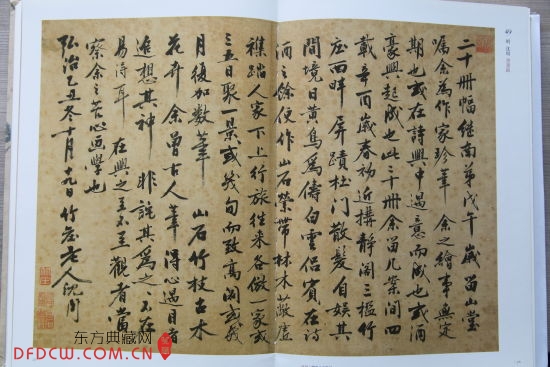 49 明 沈周
二十冊幅繼南第戊午歲留山堂
屬余為作家珍筆 余之繪事無定
期也或在詩興中過意而成也或酒
豪興起成也此三十冊余留几案間四
載辛酉歲春初近搆靜閣三楹竹
庄西畔屏蹟杜門散髮自娛其
間境日黃鳥為儔白雲侶賓在詩
酒之餘便作山石縈帶林木蔽虛
樵踏人家下上行旅往來各做一家或
三五日聚景或幾句而致高閣或幾
月後加數筆 山石竹枝古木
花卉 余曾古人筆得心過目者
追想其神 非詫其為之 不在
易得耳 在興之至不至觀者當
察余之苦心画學也
弘治乙丑冬十月十九日竹庄老人沈周
东方典藏网
DFDCW.COM.CN